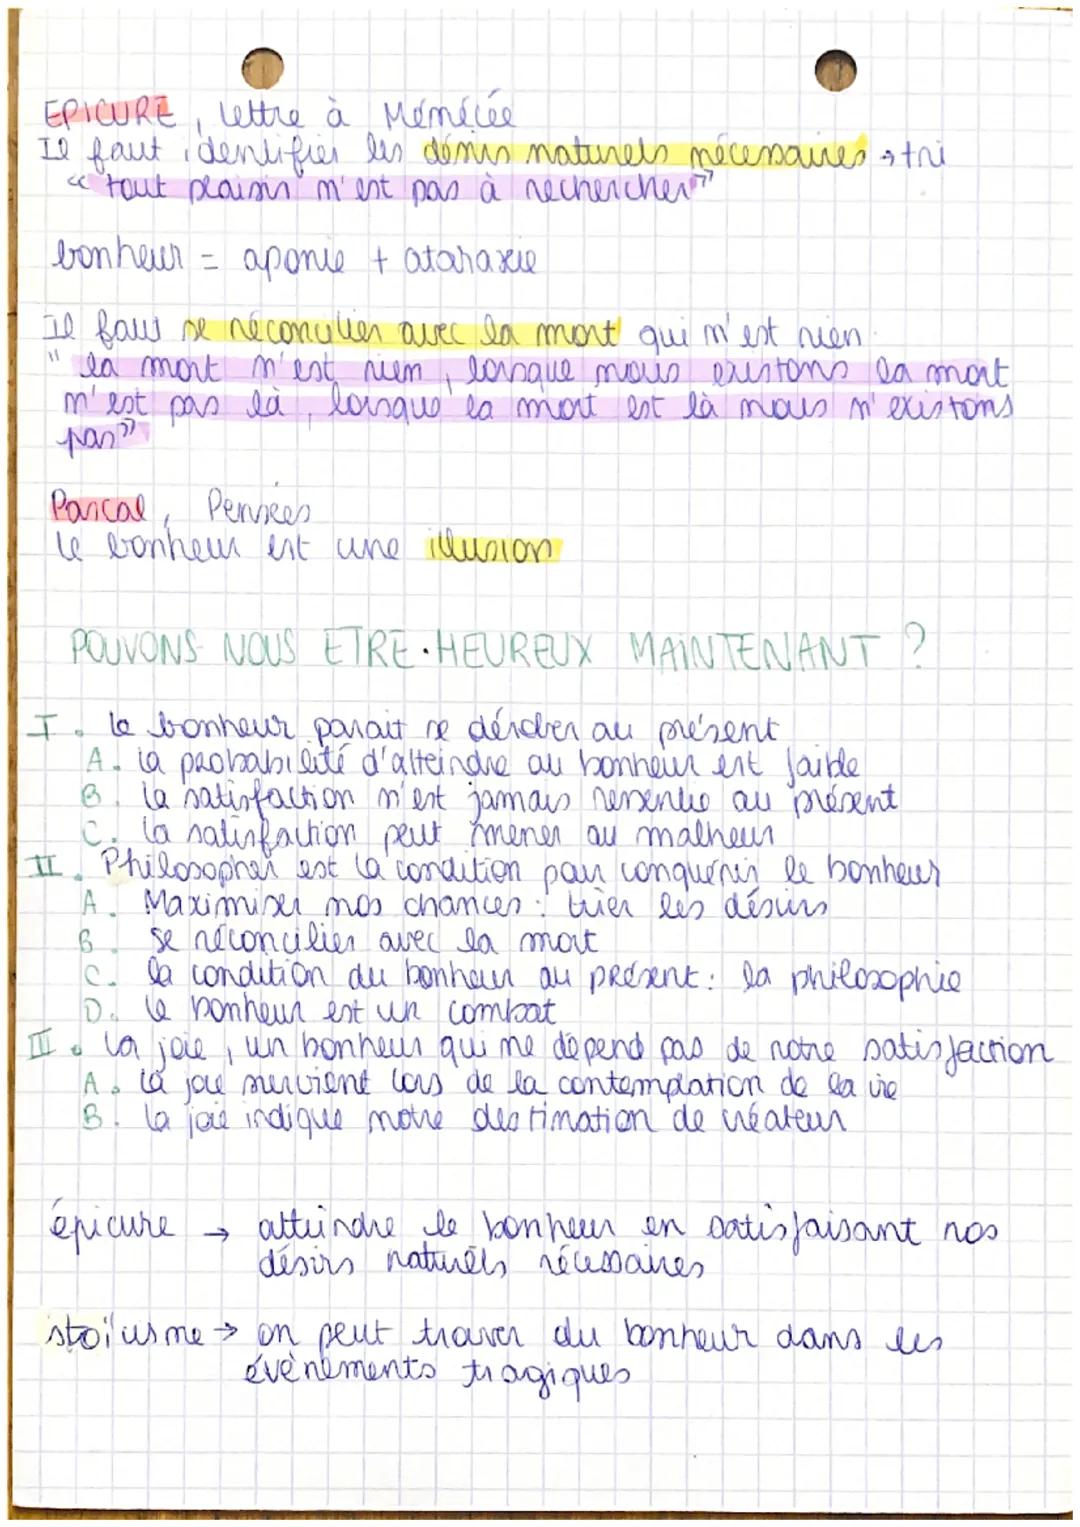 EPICURE, lettre à Ménécée
Il faut identifier les désirs naturels nécessaires → tri
« tout plaisir n'est pas à rechercher »
bonheur = aponie + ataraxie
Il faut se réconcilier avec la mort qui n'est rien.
" la mort n'est rien, lorsque nous existons la mort
n'est pas là, lorsque la mort est là nous n'existons
pas »
Pascal, Pensées
le bonheur est une illusion
POUVONS NOUS ETRE HEUREUX MAINTENANT ?
I. le bonheur parait se dérober au présent
A. la probabilité d'atteindre au bonheur est faible
B. la satisfaction n'est jamais ressentie au présent
C. la satisfaction peut mener au malheur
II. Philosopher est la condition pour conquérir le bonheur
A. Maximiser nos chances : trier les désirs
B. se réconcilier avec la mort
C. la condition du bonheur au présent : la philosophie
D. le bonheur est un combat
III. la joie, un bonheur qui ne dépend pas de notre satisfaction
A. la joie survient lors de la contemplation de la vie
B. la joie indique notre destination de créateur
épicure → atteindre le bonheur en satisfaisant nos
désirs naturels nécessaires
stoïcisme → on peut trouver du bonheur dans les
évènements tragiques